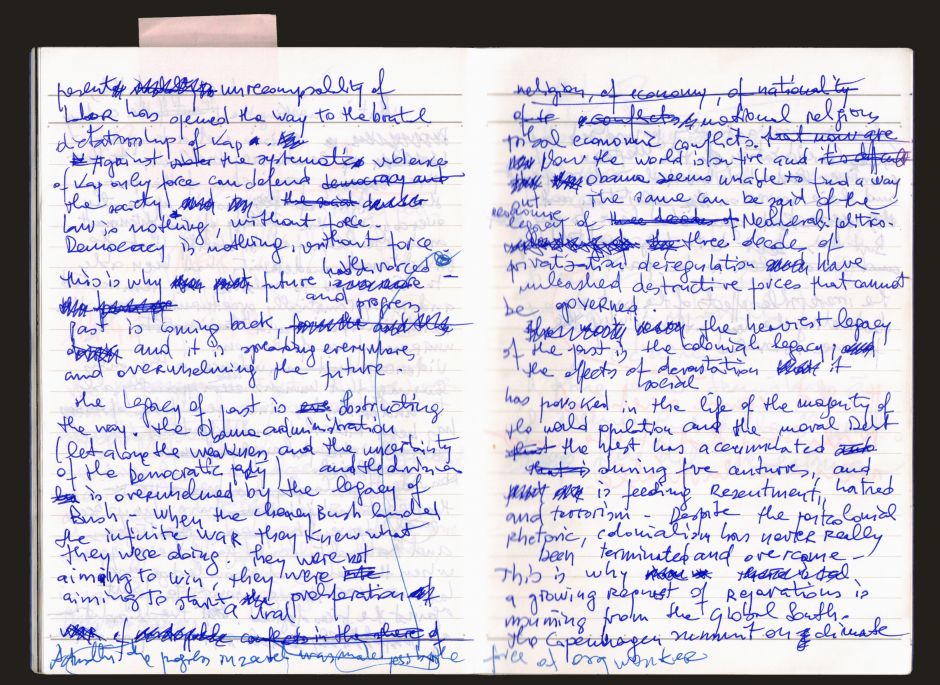 present unrecomposability of
Labor has opened the way to the brutal
dictatorship of Kap.
Against the systematic violence
of Kap only force can defend democracy and
the society
Law is nothing, without force.
Democracy is nothing, without force
this is why future
and progress
past is coming back,
and it is speaking everywhere
and overwhelming the future.
the legacy of past is obstructing
the way. the Obama administration
(let alone the weakness and the uncertainty
of the Democratic party) and the division
is overwhelmed by the legacy of
Bush - When the cheney Bush launched
the infinite War they knew what
they were doing. They were not
aiming to win, they were
aiming to start proliferation of
a viral
of conflicts in the sphere of
Actually the progress in was made
religion, of economy, of nationality
conflicts, national religious
tribal economic conflicts. that now are
Now the world is on fire and it's difficult
Obama seems unable to find a way
out. The same can be said of the
legacy of three decades of Neoliberal politics.
three decade of
privatization deregulation have
unleashed destructive forces that cannot
be governed.
the heaviest legacy
of the past is the colonial legacy:
the effects of devastation it
social
has provoked in the life of the majority of
the world population and the moral Debt
the West has accumulated
during five centuries, and
is feeding Resentment, hatred
and terrorism - Despite the postcolonial
rhetoric, colonialism has never really
been terminated and overcome -
This is why
a growing Request of Reparations is
coming from the Global South.
the Copenhagen summit on climate
force at org worker